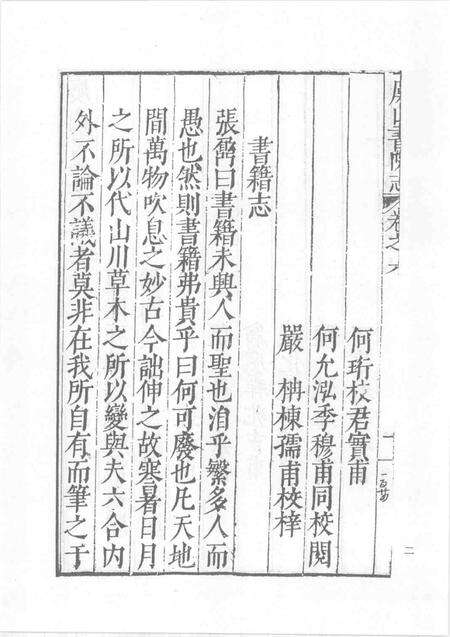 虞山書院志 卷之六
何珩校君實甫
何允泓季穆甫同校閱
嚴 柟棟孺甫校梓
書籍志
張鼐曰書籍未興人而聖也洎乎繁多人而
愚也然則書籍弗貴乎曰何可廢也凡天地
間萬物吹息之妙古今詘伸之故寒暑日月
之所以代山川草木之所以變與夫六合内
外不論不議者莫非在我所自有而筆之于
二